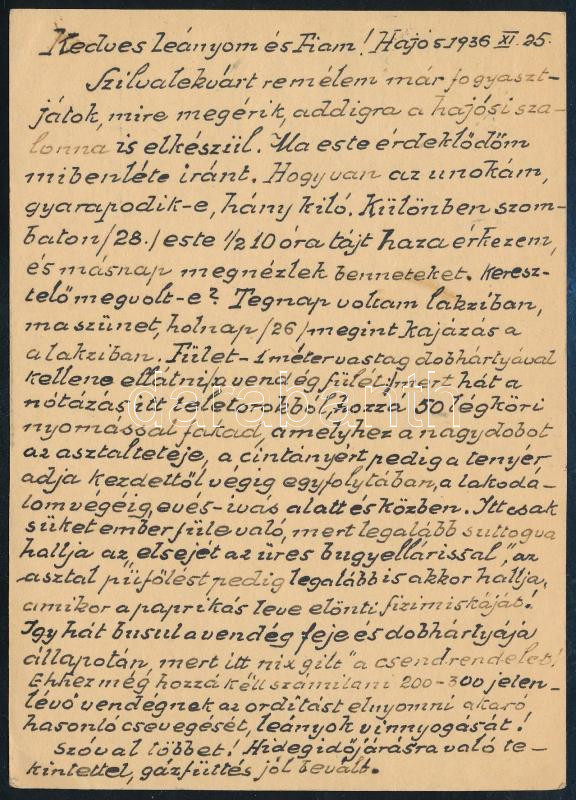 Kedves leányom és Fiam! Hajós 1936 XI. 25.
Szilvalekvárt remélem már fogyaszt-
játok, mire megérik, addigra a hajósi sza-
lonna is elkészül. Ma este érdeklődöm
mibenléte iránt. Hogy van az unokám,
gyarapodik-e, hány kiló. Különben szom-
baton /28./ este 1/2 10 óra tájt haza érkezem,
és másnap megnézlek benneteket. Keresz-
telő megvolt-e? Tegnap voltam lakziban,
ma szünet, holnap /26/ megint kajázás a
a lakziban. Fület - 1 méter vastag dobhártyával
kellene ellátni /a vendég fülét/ mert hát a
nótázás itt teletorokból, hozzá 50 légköri
nyomással fakad, amelyhez a nagydobot
az asztal teteje, a cintányért pedig a tenyér
adja kezdettől végig egyfolytában, a lakoda-
lom végéig, evés-ivás alatt és közben. Itt csak
süket ember füle való, mert legalább suttogva
hallja az "elsejét az üres bugyellárissal," az
asztal püfölést pedig legalább is akkor hallja,
amikor a paprikás leve elönti fizimiskáját!
Így hát busul a vendég feje és dobhártyája
állapotán, mert itt nix gilt "a csendrendelet!
Ehhez még hozzá kell számítani 200-300 jelen-
lévő vendégnek az ordítást elnyomni akaró
hasonló csevegését, leányok vinnyogását!
Szóval többet! Hideg időjárásra való te-
kintettel, gázfűtés jól bevált.
darabanth